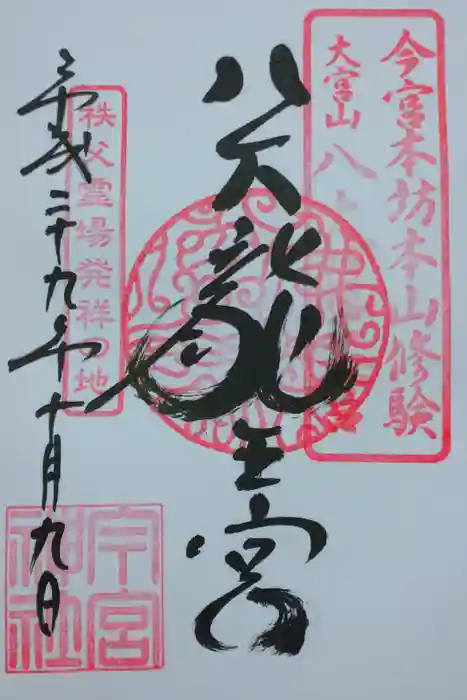 今宮本坊本山修験
大宮山八
八大龍王宮
秩父霊場発祥の地
平成二十九年十月九日
今宮神社